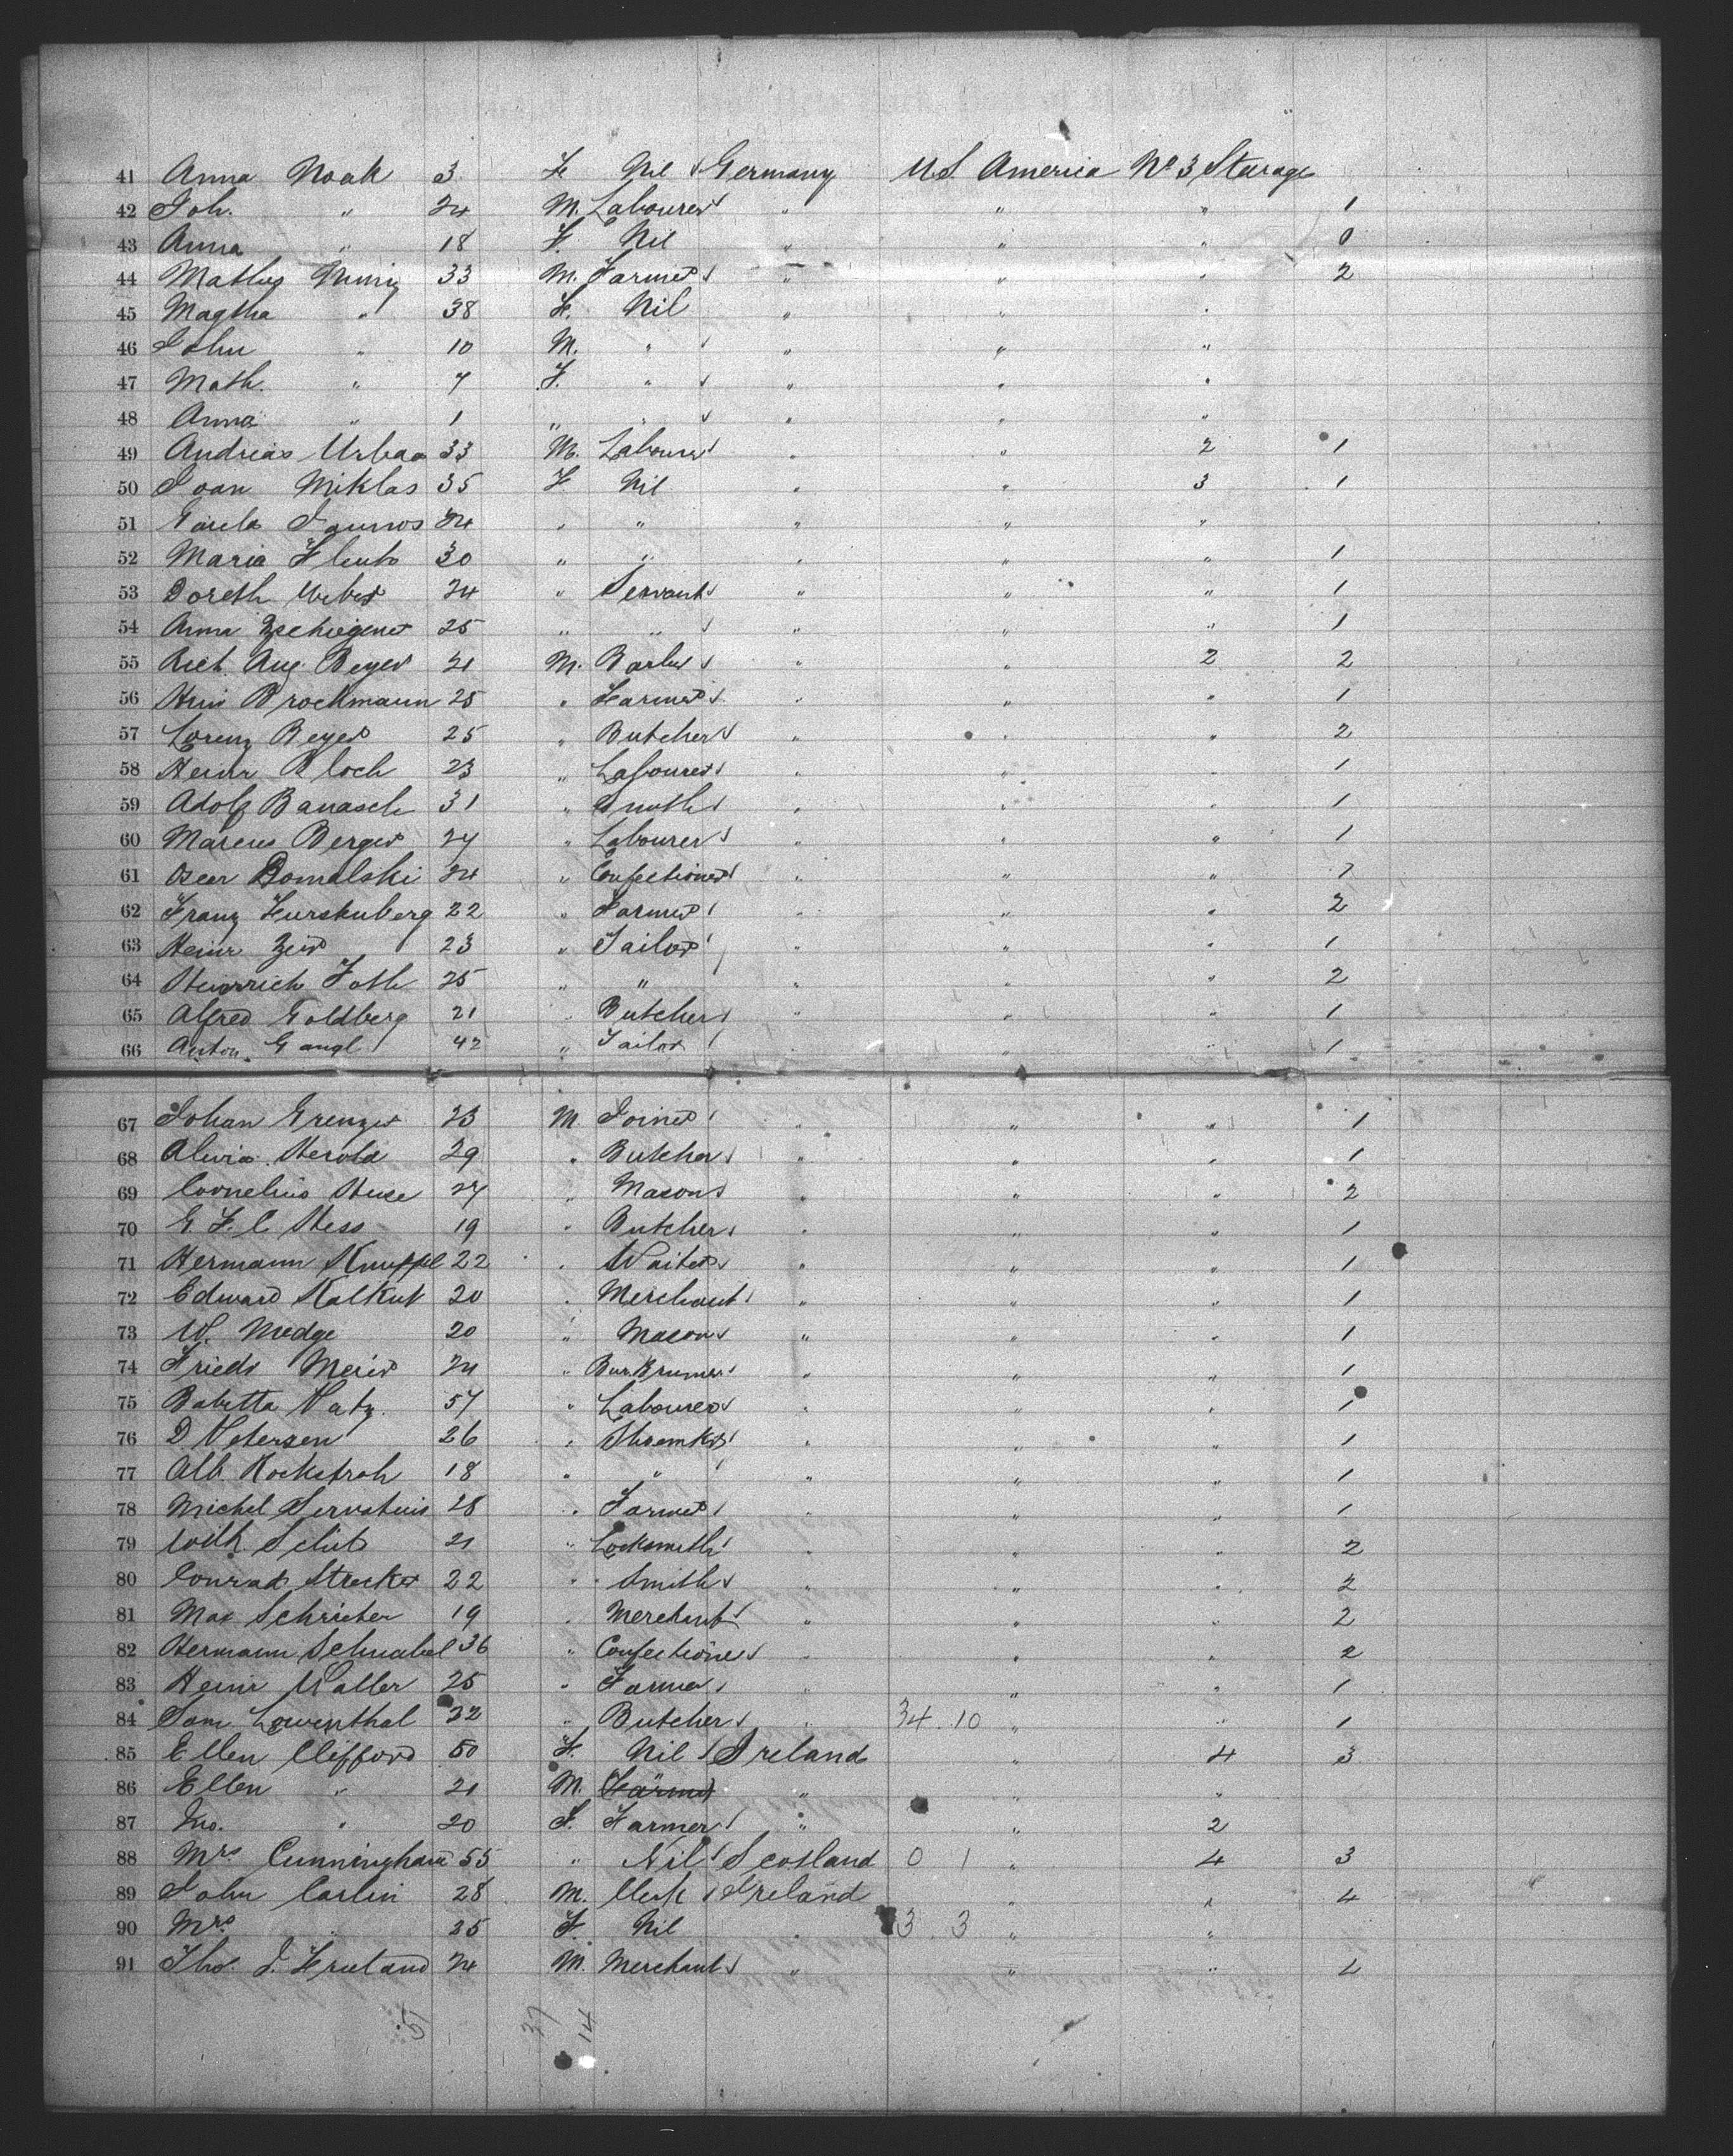 41 Anna Noak 3 F Nil Germany U.S. America No 3 Starage
42 Joh. " 24 M. Labourer " " " 1
43 Anna " 18 F. Nil " " "
44 Mathes 33 M. Farmer " " " 2
45 Magtha " 38 F. Nil " " "
46 John " 10 M. " " " "
47 Math. " 7 F. " " " "
48 Anna " 1 " " " " "
49 Andreas 33 M. Labourer " " 2 1
50 Joan Miklas 35 F Nil " " 3 1
51 24 " " " " "
52 Maria 30 " " " " " 1
53 Doreth Weber 24 " Servant " " " 1
54 Anna 25 " " " " " 1
55 Rich. Aug. Beyer 21 M. Barber " " 2 2
56 Brockmann 25 " Farmer " " " 1
57 Lorenz Beyer 25 " Butcher " " " 2
58 Heinr Bloch 23 " Labourer " " " 1
59 Adolf Banasch 31 " Smith " " " 1
60 Marcus Berger 27 " Labourer " " " 1
61 Oscar Domalski 24 " Confectioner " " "
62 Franz 22 " Farmer " " " 2
63 Heinr 23 " Tailor " " " 1
64 Heinrich Foth 25 " " " " " 2
65 Alfred Goldberg 21 " Butcher " " " 1
66 Anton Gangl 42 " Tailor " " " 1
67 Johan Grenzer 23 M Joiner " " " 1
68 Herold 29 " Butcher " " " 1
69 Cornelius Huse 27 " Mason " " " 2
70 G F. C Hess 19 " Butcher " " " 1
71 Hermann Knuppel 22 " Waiter " " " 1
72 Edward Kalkut 20 " Merchant " " " 1
73 W. Medge 20 " Mason " " " 1
74 Friedr Meier 24 " " " " 1
75 Babetta 57 " Labourer " " " 1
76 D. Petersen 26 " Shoemkr " " " 1
77 Alb. Rockstroh 18 " " " " " 1
78 Michel Servatius 28 " Farmer " " " 1
79 Wilh. 21 " Locksmith " " " 2
80 Conrad Strecker 22 " Smith " " " 2
81 Max Schrieber 19 " Merchant " " " 2
82 Hermann Schnabel 36 " Confectioner " " " 2
83 Heinr Waller 25 " Farmer " " " 1
84 Sam Lowenthal 32 " Butcher " 34. 10 " " 1
85 Ellen Clifford 50 F. Nil Ireland " 4 3
86 Ellen " 21 M. Farmer " " "
87 Jno. " 20 F. Farmer " " 2
88 Mrs Cunningham 55 " Nil Scotland 0 1 " 4 3
89 John Carlin 28 M. Clerk Ireland " " 4
90 Mrs " 35 F. Nil " 3 3 " "
91 Thos. J. Freeland 24 M. Merchant " " "
37
14